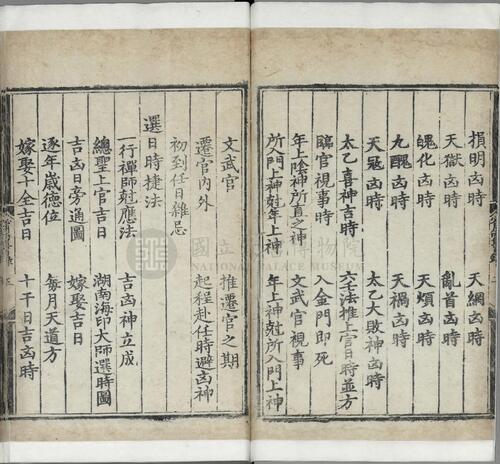 損明凶時 天網凶時
天獄凶時 亂首凶時
魄化凶時 天煩凶時
九醜凶時 天禍凶時
天寇凶時 太乙大敗神凶時
太乙喜神吉時 六壬法推上官日時並方
臨官視事時 入金門即死
年上陰神所直之神 文武官視事
所入門上神尅年上神 年上神尅所入門上神
文武官 推遷官之期
遷官內外 起程赴任時避凶神
初到任日雜忌
選日時捷法
一行禪師尅應法 吉凶神立成
總聖上官吉日 湖南海印大師選時圖
吉凶日旁通圖 嫁娶吉日
逐年歲德位 每月天道方
嫁娶十全吉日 十干日吉凶時
國立故宮博物院
NATIONAL PALACE MUSEUM